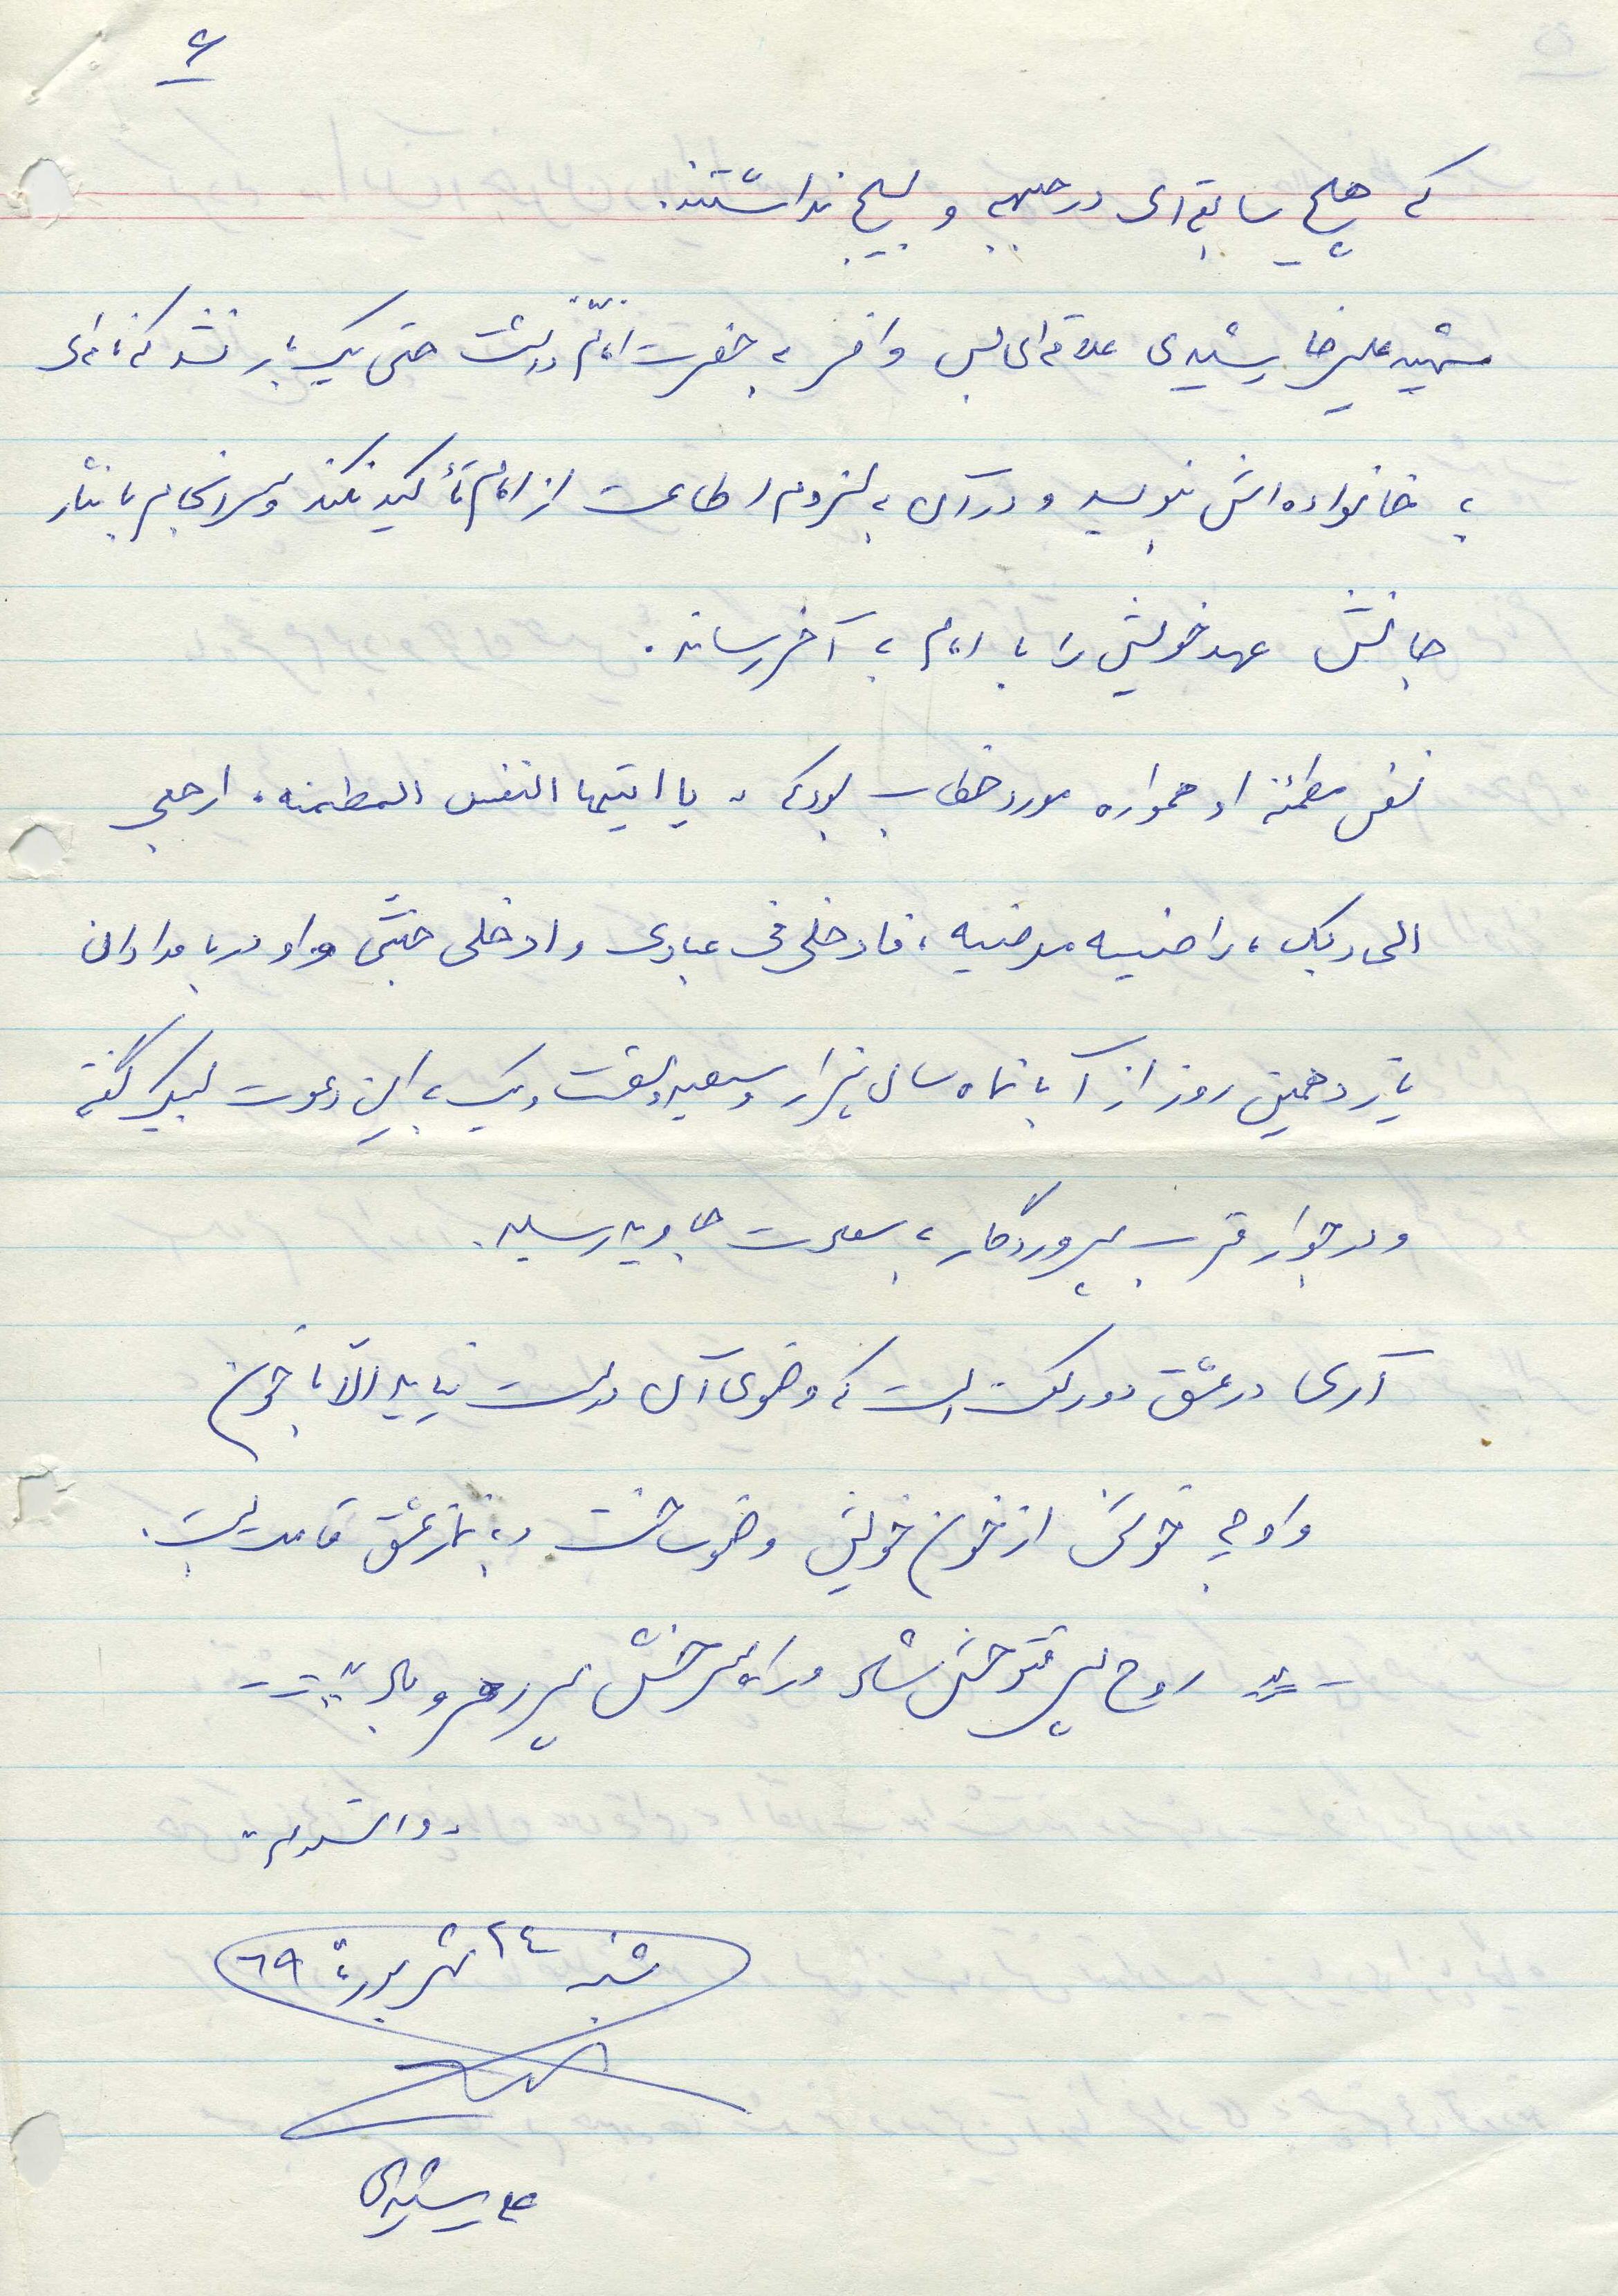 ۶
که هیچ سابقه‌ای در جبهه و بسیج نداشتند.
شهید علیرضا رشیدی علاقه‌ای بس وافر به حضرت امام داشت حتی یکبار نشد که نامه‌ای
به خانواده‌اش بنویسد و در آن به لزوم اطاعت از امام تأکید نکند و سرانجام با نثار
جانش عهد خویش را با امام به آخر رساند.
نفس مطمئنه او همواره مورد خطاب بود که " یا ایتها النفس المطمئنه، ارجعی
الی ربک، راضیه مرضیه، فادخلی فی عبادی وادخلی جنتی و او در بامدادان
یازدهمین روز از آبانماه سال هزار و سیصد و شصت و یک به این دعوت لبیک گفته
و در جوار قرب پروردگار به سعادت جاوید رسید.
آری در عشق دو رکعت است که وضوی آن درست نیاید الا با خون
و او چه خوش از خون خویش وضو ساخت و به نماز عشق قامت بست.
روح پر فتوحش شاد و راه سرخش پر رهرو باد
"والسلام"
شنبه ۲۴ شهریور ۶۹
رشیدی